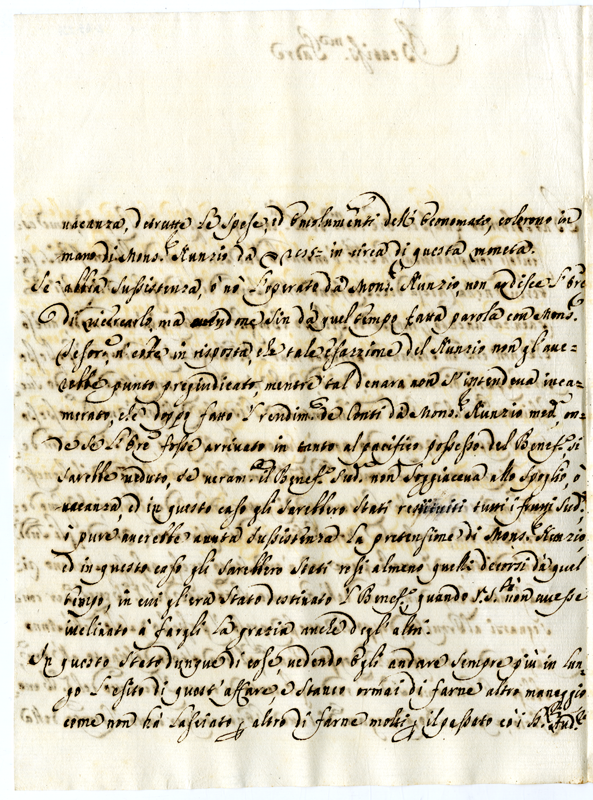 vacanza, detratte le spese, ed emolumenti dell'Economato, colorono in
mano di Mons.r Nunzio da in circa di questa moneta.
Se abbia sussistenza, ò nò l'operato da Mons.r Nunzio, non ardisce l'Ore
di ricercarlo, ma avendone sin da quel tempo fatta parola con Mons.r
Tesor.e n'ebbe in risposta, che tale esazzione del Nunzio non gl'ave-
rebbe punto pregiudicato, mentre tal denaro non s'intendeva inca-
merato, che doppo fatto il rendim.to de Conti da Mons.r Nunzio med.o, on-
de se l'Ore fosse arrivato in tanto al pacifico possesso del Benef.o si
sarebbe veduto, se veram.te il Benef.o sud.o non soggiaceva allo spoglio, ò
vacanza, ed in questo caso gli sarebbero stati restituiti tutti i frutti sud.i,
ò pure averebbe avuta sussistenza la pretensione di Mons.r Nunzio,
ed in questo caso gli sarebbero stati resi almeno quelli decorsi da quel
tempo, in cui gl'era stato destinato il Benef.o, quando V. S.tà non avesse
inclinato à fargli la grazia anche degl'altri.
In questo stato dunque di cose, vedendo egli andare sempre più in lun-
go l'esito di quest'affare e stanco ormai di farne altro maneggio
come non hà lasciato altro di farne molti il passato cò i sud.i
Beatiss.mo Padre